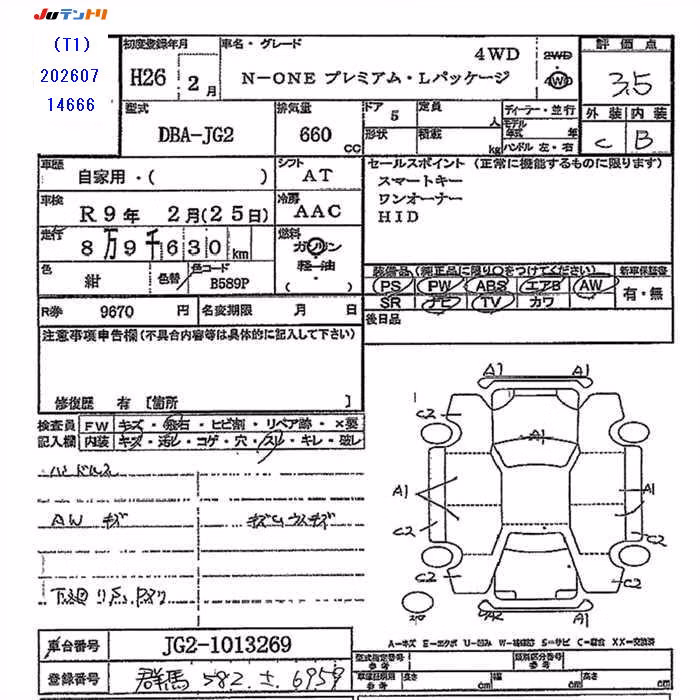 Juテントリ
(T1)
202607
14666
初度登録年月
H26 2月
車名・グレード
4WD
N-ONE プレミアム・Lパッケージ
2WD
4WD
評価点
3.5
外装 内装
C B
型式
DBA-JG2
排気量
660 CC
ドア 5
形状
定員 人
積載 kg
ディーラー・並行
モデル年式 年
ハンドル 左・右
車歴
自家用・( )
シフト
AT
車検
R9年 2月(25日)
冷房
AAC
走行
8万9千630km
燃料
ガソリン
軽油
( )
色
紺
色替
色コード
B589P
R券 9670 円
名変期限 月 日
セールスポイント(正常に機能するものに限ります)
スマートキー
ワンオーナー
HID
装備品(純正品に限り○をつけてください)
新車保証書
PS PW ABS エアB AW
SR ナビ TV カワ
有・無
後日品
注意事項申告欄(不具合内容等は具体的に記入して下さい)
修復歴 有 [箇所 ]
検査員記入欄
FW キズ・飛石・ヒビ割・リペア跡・×要
内装 キズ・汚レ・コゲ・穴・スレ・キレ・破レ
ハンドルスレ
AW キズ
下廻リ
A1 A1
C2 C2
A1
A1 A1
C2 C2
C2 C2
A2 A1
A-キズ E-エクボ U-凹み W-補修跡 S-サビ C-腐食 XX-交換済
車台番号
JG2-1013269
登録番号
群馬 582 さ 6959
型式指定番号 参考
類別区分番号 参考
車庫証明用 参考
長さ cm
幅 cm
高さ cm